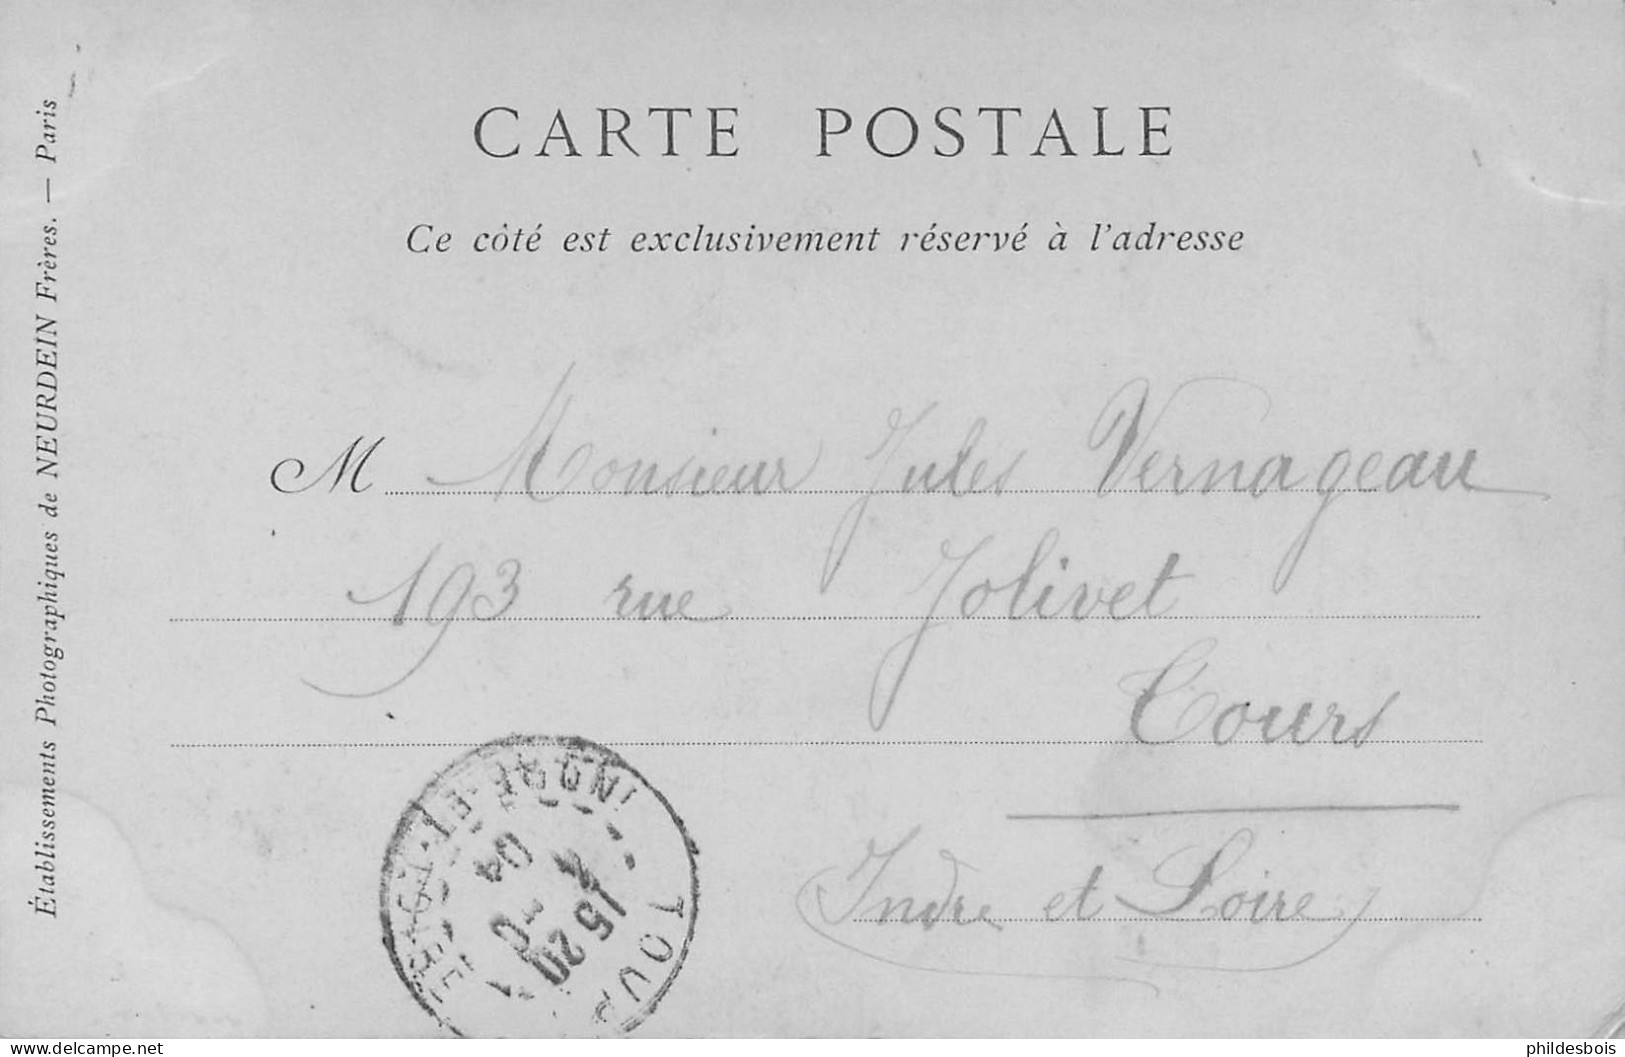 CARTE POSTALE
Ce côté est exclusivement réservé à l'adresse
M Monsieur Jules Vernageau
193 rue Jolivet
Tours
Indre et Loire
Établissements Photographiques de NEURDEIN Frères. — Paris
TOURS
INDRE-ET-LOIRE
15 20
04
delcampe.net
phildesbois